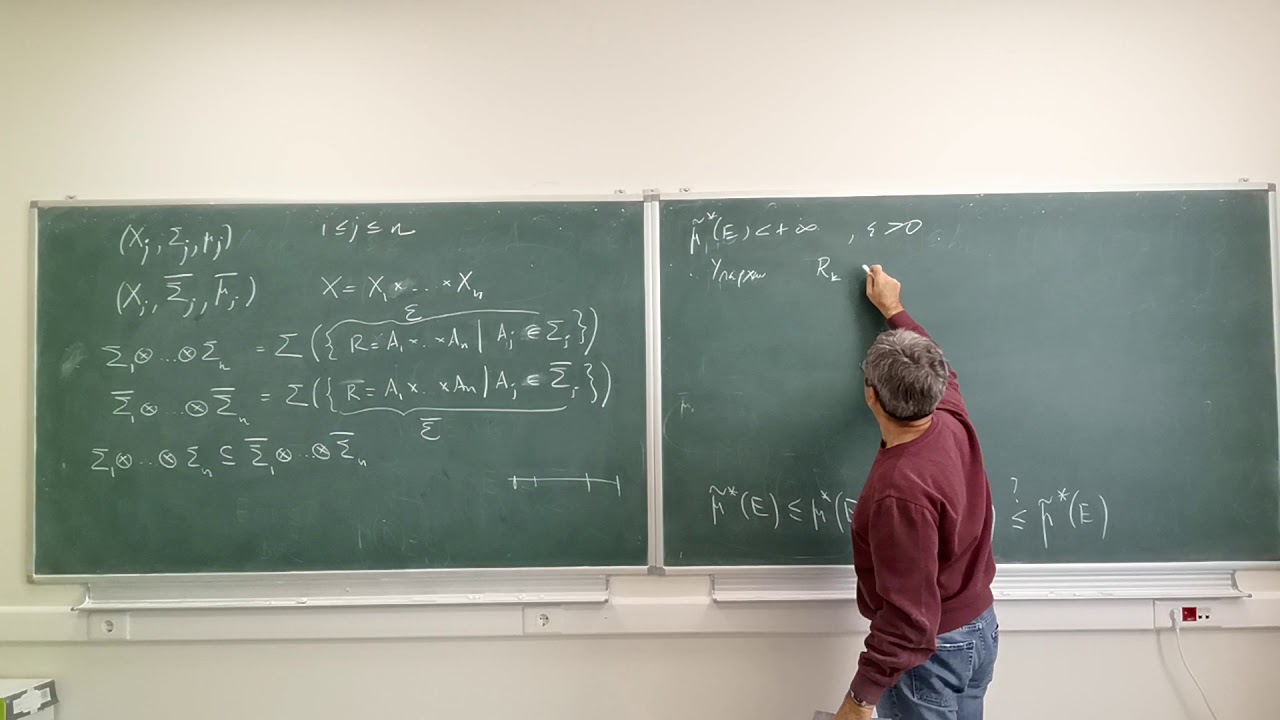 (X_j, Σ_j, μ_j) 1 ≤ j ≤ n
(X_j, Σ̅_j, μ̅_j) X = X_1 × ... × X_n
ℰ
Σ_1 ⊗ ... ⊗ Σ_n = Σ({R = A_1 × ... × A_n | A_j ∈ Σ_j})
Σ̅_1 ⊗ ... ⊗ Σ̅_n = Σ({R̅ = A_1 × ... × A_n | A_j ∈ Σ̅_j})
ℰ̅
Σ_1 ⊗ ... ⊗ Σ_n ⊆ Σ̅_1 ⊗ ... ⊗ Σ̅_n
μ̃*(E) < +∞ , ε > 0
Υπάρχουν R_k
μ̃*(E) ≤ μ*(E ) ≤^? μ̃*(E)